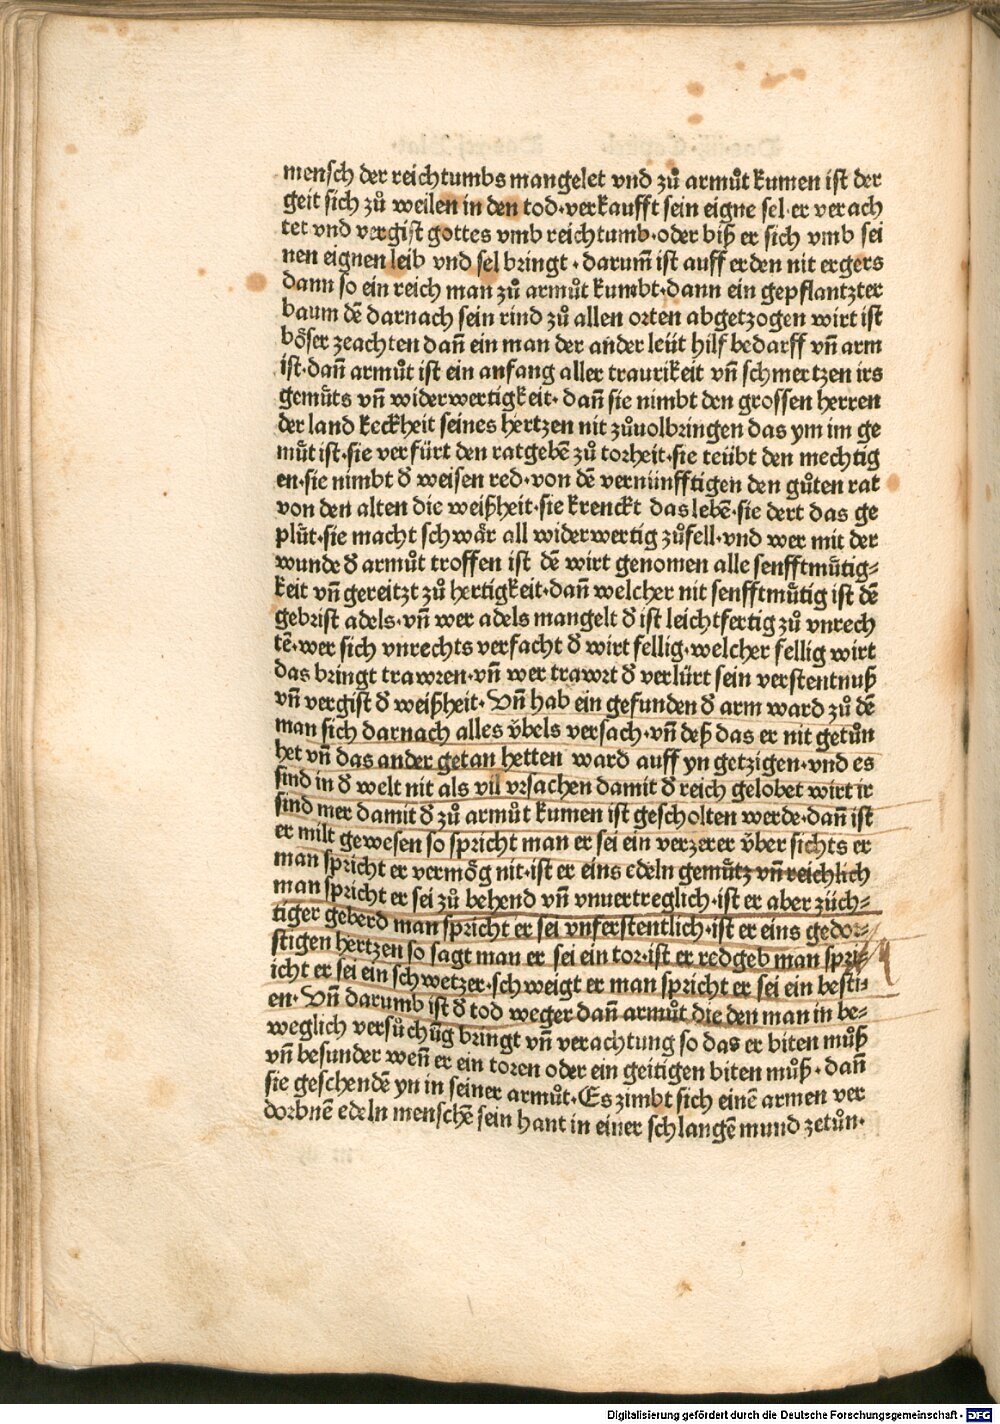 mensch der reichtumbs mangelet vnd zů armůt kumen ist der
geit sich zů weilen in den tod·verkaufft sein eigne sel·er verach
tet vnd vergist gottes vmb reichtumb·oder biß er sich vmb sei
nen eignen leib vnd sel bringt·darum̄ ist auff erden nit ergers
dann so ein reich man zů armůt kumbt·dann ein gepflantzter
baum dē darnach sein rind zů allen orten abgetzogen wirt ist
böser zeachten dañ ein man der ander leüt hilf bedarff vñ arm
ist·dañ armůt ist ein anfang aller traurikeit vñ schmertzen irs
gemüts vñ widerwertigkeit·dañ sie nimbt den grossen herren
der land keckheit seines hertzen nit zůuolbringen das ym im ge
müt ist·sie verfürt den ratgebē zů torheit·sie teübt den mechtig
en·sie nimbt d̕ weisen red·von dē vernünfftigen den gůten rat
von den alten die weißheit·sie krenckt das lebē·sie dert das ge
plüt·sie macht schwär all widerwertig zůfell·vnd wer mit der
wunde d̕ armůt troffen ist dē wirt genomen alle senfftmütig⸗
keit vñ gereitzt zů hertigkeit·dañ welcher nit senfftmütig ist dē
gebrist adels·vñ wer adels mangelt d̕ ist leichtfertig zů vnrech
tē·wer sich vnrechts verfacht d̕ wirt fellig·welcher fellig wirt
das bringt trawren·vñ wer trawrt d̕ verlürt sein verstentnuß
vñ vergist d̕ weißheit·Vñ hab ein gefunden d̕ arm ward zů dē
man sich darnach alles v̈bels versach·vñ deß das er nit getůn
het vñ das ander getan hetten ward auff yn getzigen·vnd es
sind in d̕ welt nit als vil vrsachen damit d̕ reich gelobet wirt ir
sind mer damit d̕ zů armůt kumen ist gescholten werde·dañ ist
er milt gewesen so spricht man er sei ein verzerer v̈ber sichts er
man spricht er vermög nit·ist er eins edeln gemütz vñ reichlich
man spricht er sei zů behend vñ vnuertreglich·ist er aber züch⸗
tiger geberd man spricht er sei vnferstentlich·ist er eins gedor⸗
stigen hertzen so sagt man er sei ein tor·ist er redgeb man spri⸗
icht er sei ein schwetzer·schweigt er man spricht er sei ein besti⸗
en·Vñ darumb ist d̕ tod weger dañ armůt die den man in be⸗
weglich versůchūg bringt vñ verachtung so das er biten můß
vñ besunder weñ er ein toren oder ein geitigen biten můß·dañ
sie geschendē yn in seiner armůt·Es zimbt sich einē armen ver
dorbnē edeln menschē sein hant in einer schlangē mund zetůn·
Digitalisierung gefördert durch die Deutsche Forschungsgemeinschaft - DFG